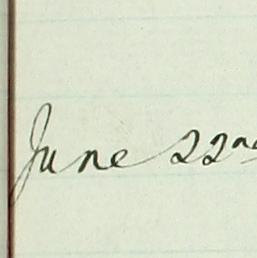 June 22nd